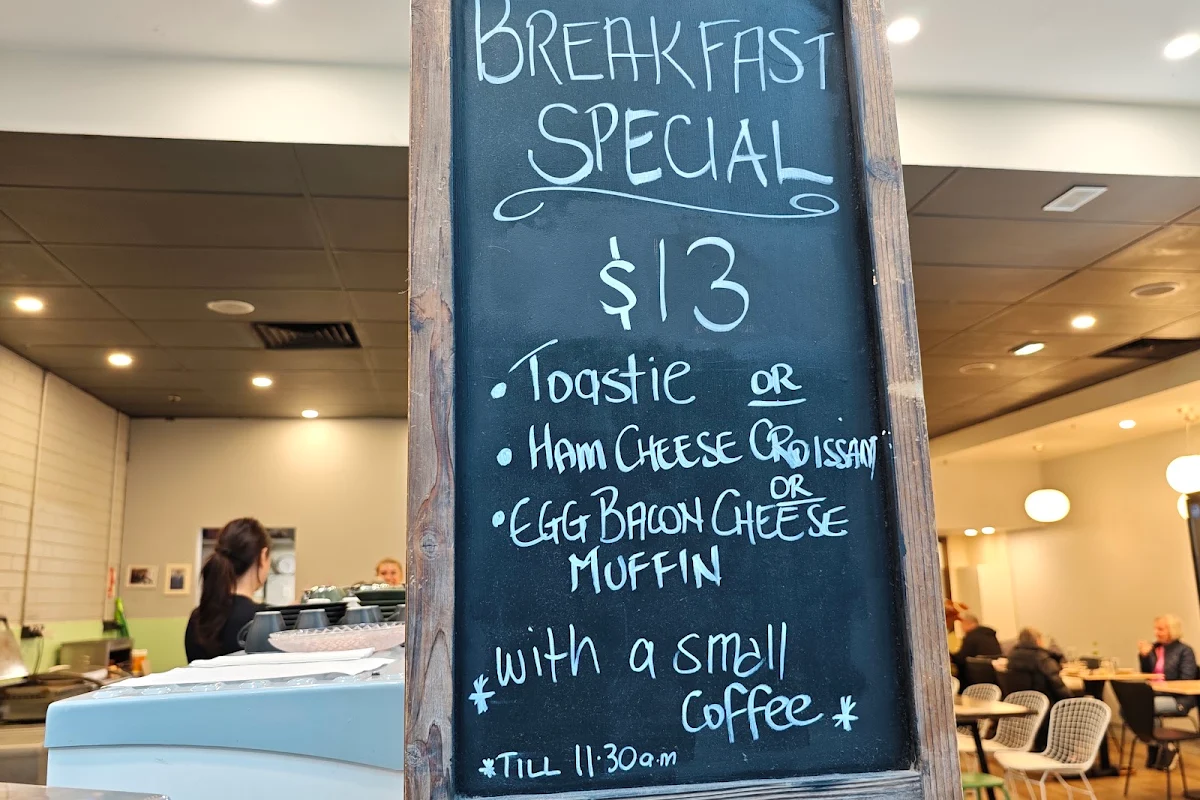 BREAKFAST
SPECIAL
$13
• Toastie OR
• HAM CHEESE CROISSANT
OR
• EGG BACON CHEESE
MUFFIN
with a small
* coffee *
*TILL 11.30am